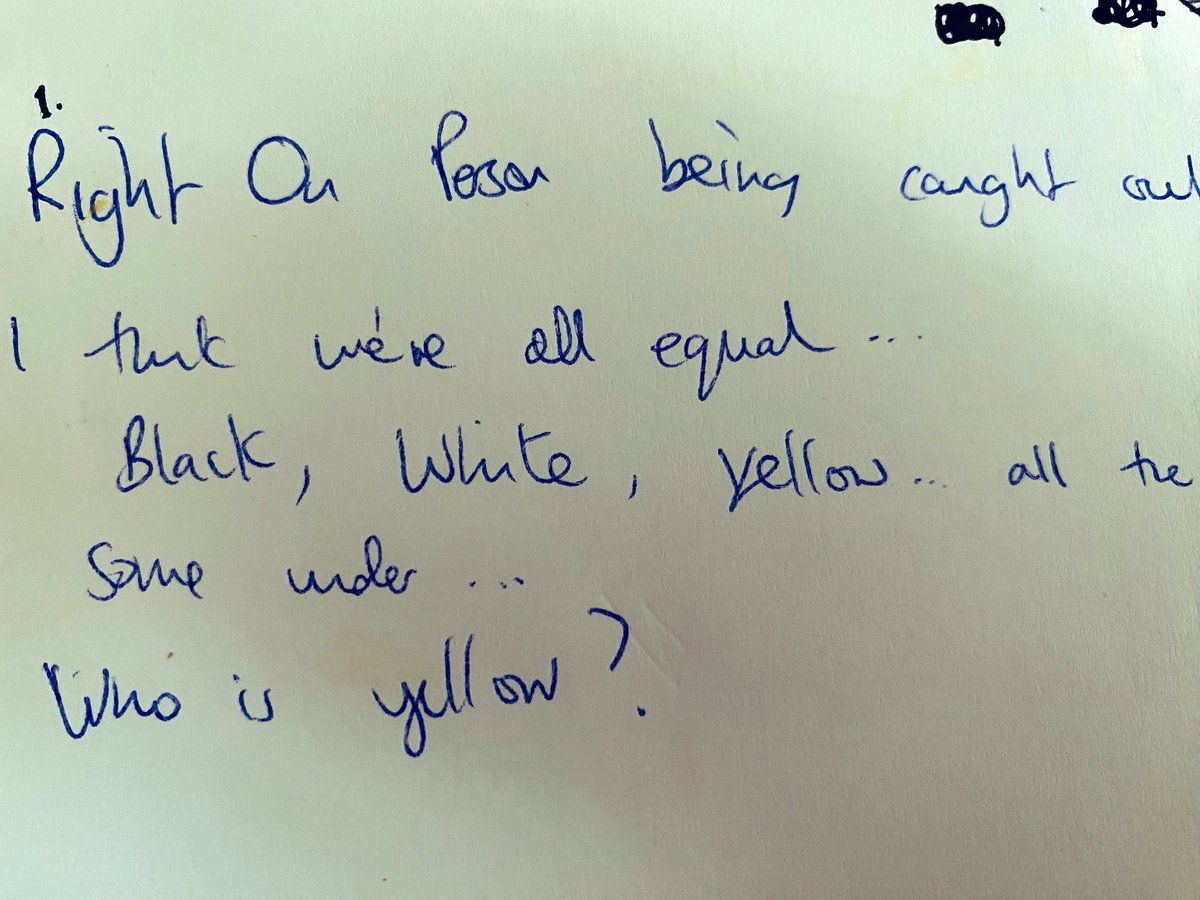 1.
Right On Person being caught out
I think we're all equal...
Black, White, yellow... all the
same under...
Who is yellow?